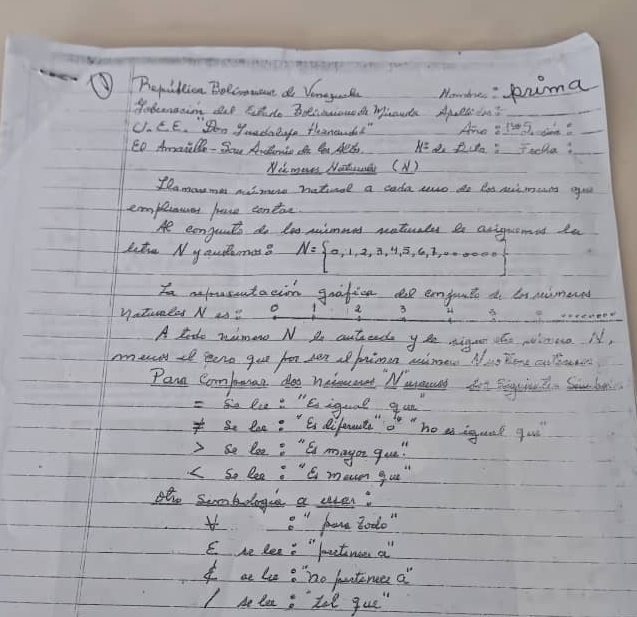 1 República Bolivariana de Venezuela Nombres: prima
Gobernación del Estado Bolivariano de Miranda Apellidos:
U.E.E. "Don Guadalupe Hernandez" Año:
El Amarillo - San Antonio de los Altos. Nº de Lista: Fecha:
Números Naturales (N)
Llamaremos número natural a cada uno de los números que
empleamos para contar.
Al conjunto de los números naturales le asignamos la
letra N y anotamos: N={0,1,2,3,4,5,6,7,........}
La representación gráfica del conjunto de los números
naturales N es: 0 1 2 3 4 5 ........
A todo número N le antecede y le sigue otro número N,
menos el cero que por ser el primer número N no tiene antecesor.
Para Comparar dos números "N" usamos los siguientes Simbolos
= Se lee: "Es igual que"
≠ Se lee: "Es diferente" o "no es igual que"
> Se lee: "Es mayor que."
< Se lee: "Es menor que"
otra Simbología a usar:
∀ : "para todo"
∈ se lee: "pertenece a"
∉ se lee: "no pertenece a"
/ se lee: "tal que"